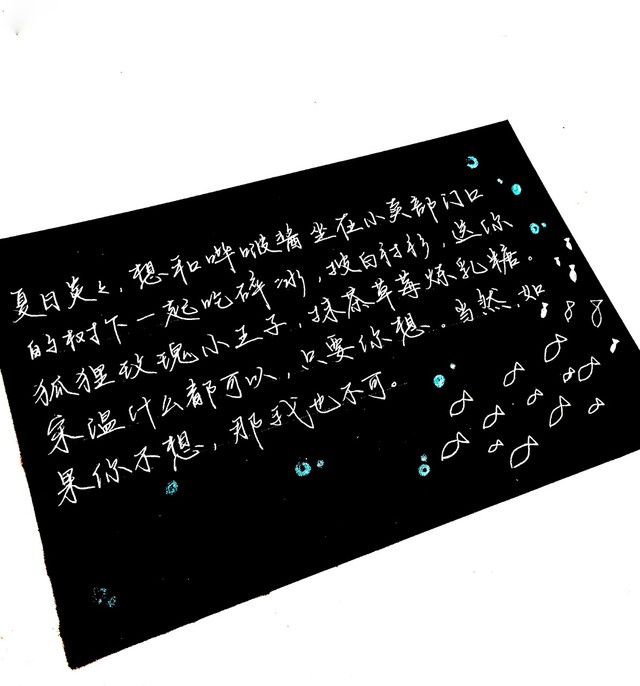 夏日炎之,想和哗啵酱坐在小卖部门口
的树下一起吃碎冰,披白衬衫,送你
狐狸玫瑰小王子,抹茶草莓炼乳糖。
宋温什么都可以,只要你想。当然,如
果你不想,那我也不可。